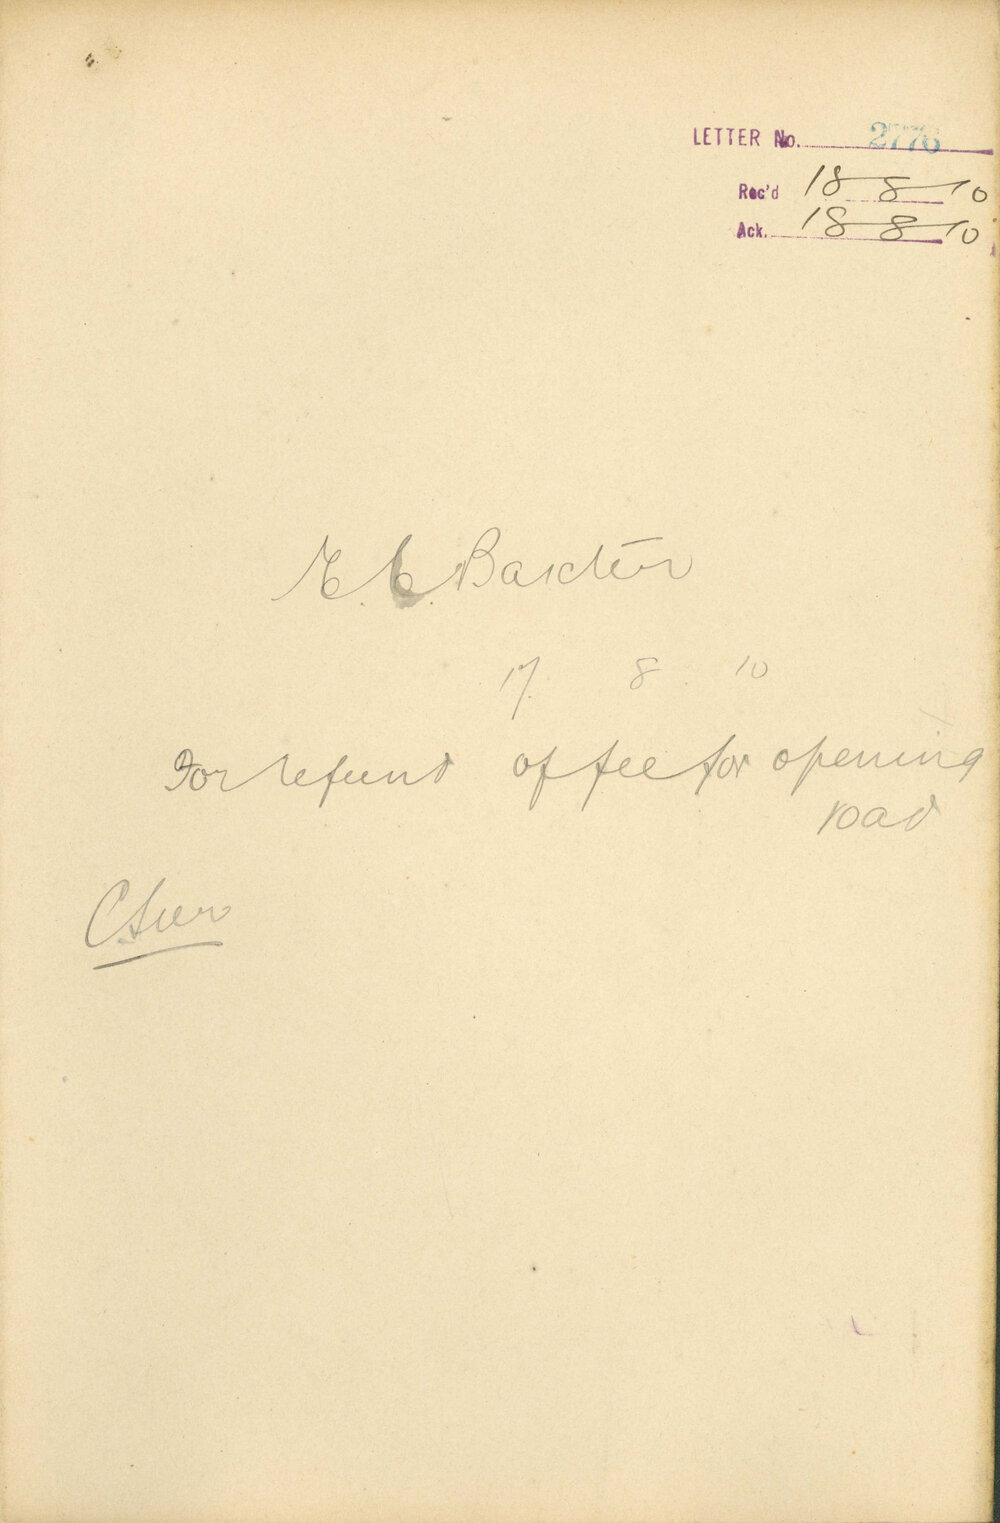 LETTER No. 2776
Rec'd 18-8-10
Ack. 18-8-10
E. C. Baxter
17 8 10
For refund of fee for opening
road